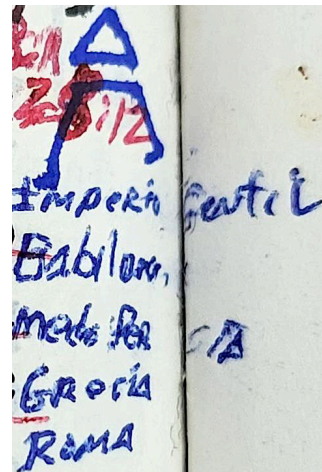 Imperio Gentil
Babilon
Medo Per SIA
Grecia
ROMA